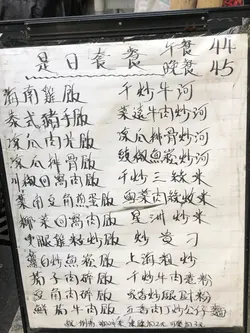 是日套餐 午餐 44
晚餐 45
海南雞飯 干炒牛河
泰式豬手飯 菜遠牛肉炒河
涼瓜肉片飯 涼瓜排骨炒河
涼瓜排骨飯 豉椒魚鬆炒河
川椒回鍋肉飯 干炒三絲米
菜甫豆角鬆飯 雪菜肉絲炆米
椰菜回鍋肉飯 星洲炒米
雞粒炒飯 炒貴刁
魚鬆飯 上海粗炒
茄子肉碎飯 干炒牛肉卷粉
豆角肉碎飯 腸粉
鮮茄牛肉飯 肉炒公仔麵